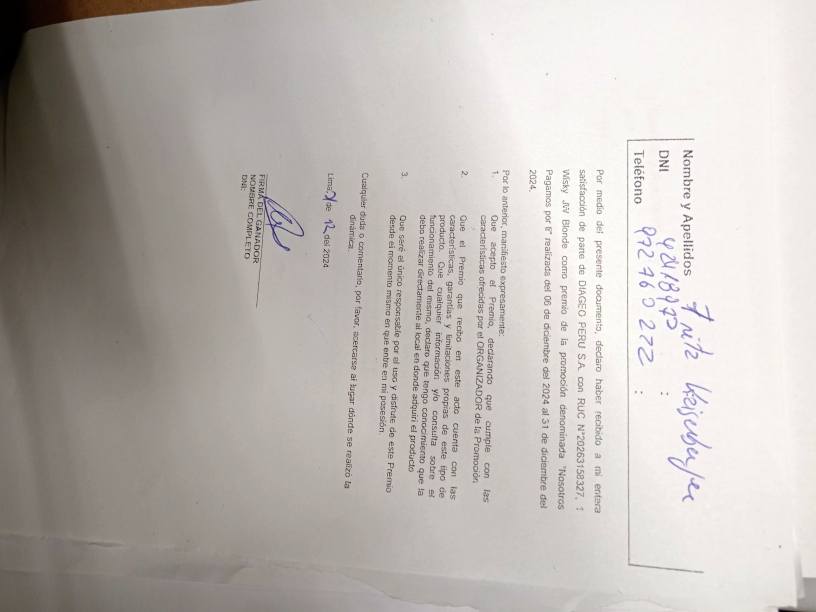 Nombre y Apellidos : Fritz
DNI :
Teléfono : 972763272
Por medio del presente documento, declaro haber recibido a mi entera
satisfacción de parte de DIAGEO PERU S.A. con RUC N°20263158327, 1
Wisky JW Blonde como premio de la promoción denominada "Nosotros
Pagamos por ti" realizada del 06 de diciembre del 2024 al 31 de diciembre del
2024.
Por lo anterior, manifiesto expresamente:
1. Que acepto el Premio, declarando que cumple con las
características ofrecidas por el ORGANIZADOR de la Promoción
2. Que el Premio que recibo en este acto cuenta con las
características, garantías y limitaciones propias de este tipo de
producto. Que cualquier información y/o consulta sobre el
funcionamiento del mismo, declaro que tengo conocimiento que la
debo realizar directamente al local en donde adquirí el producto
3. Que seré el único responsable por el uso y disfrute de este Premio
desde el momento mismo en que entre en mi posesión.
Cualquier duda o comentario, por favor, acercarse al lugar dónde se realizó la
dinámica.
Lima, de 12 del 2024
FIRMA DEL GANADOR
NOMBRE COMPLETO
DNI: